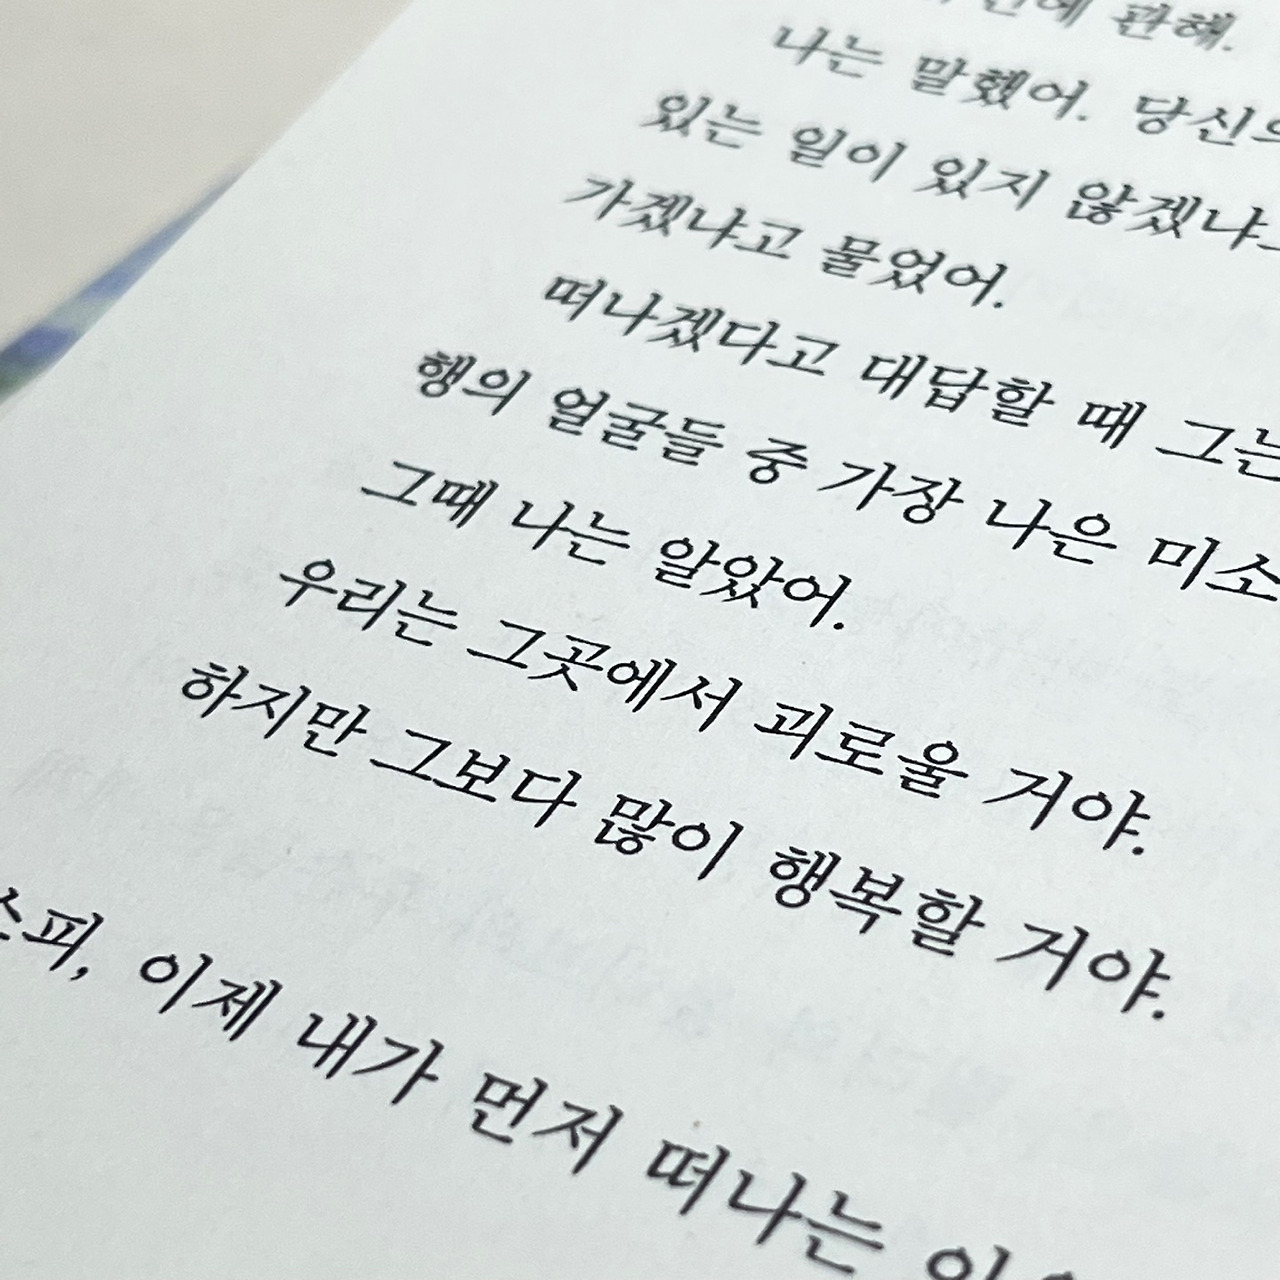 관해.
나는 말했어. 당신의
있는 일이 있지 않겠냐고
가겠냐고 물었어.
떠나겠다고 대답할 때 그는
행의 얼굴들 중 가장 나은 미소
그때 나는 알았어.
우리는 그곳에서 괴로울 거야.
하지만 그보다 많이 행복할 거야.
소피, 이제 내가 먼저 떠나는